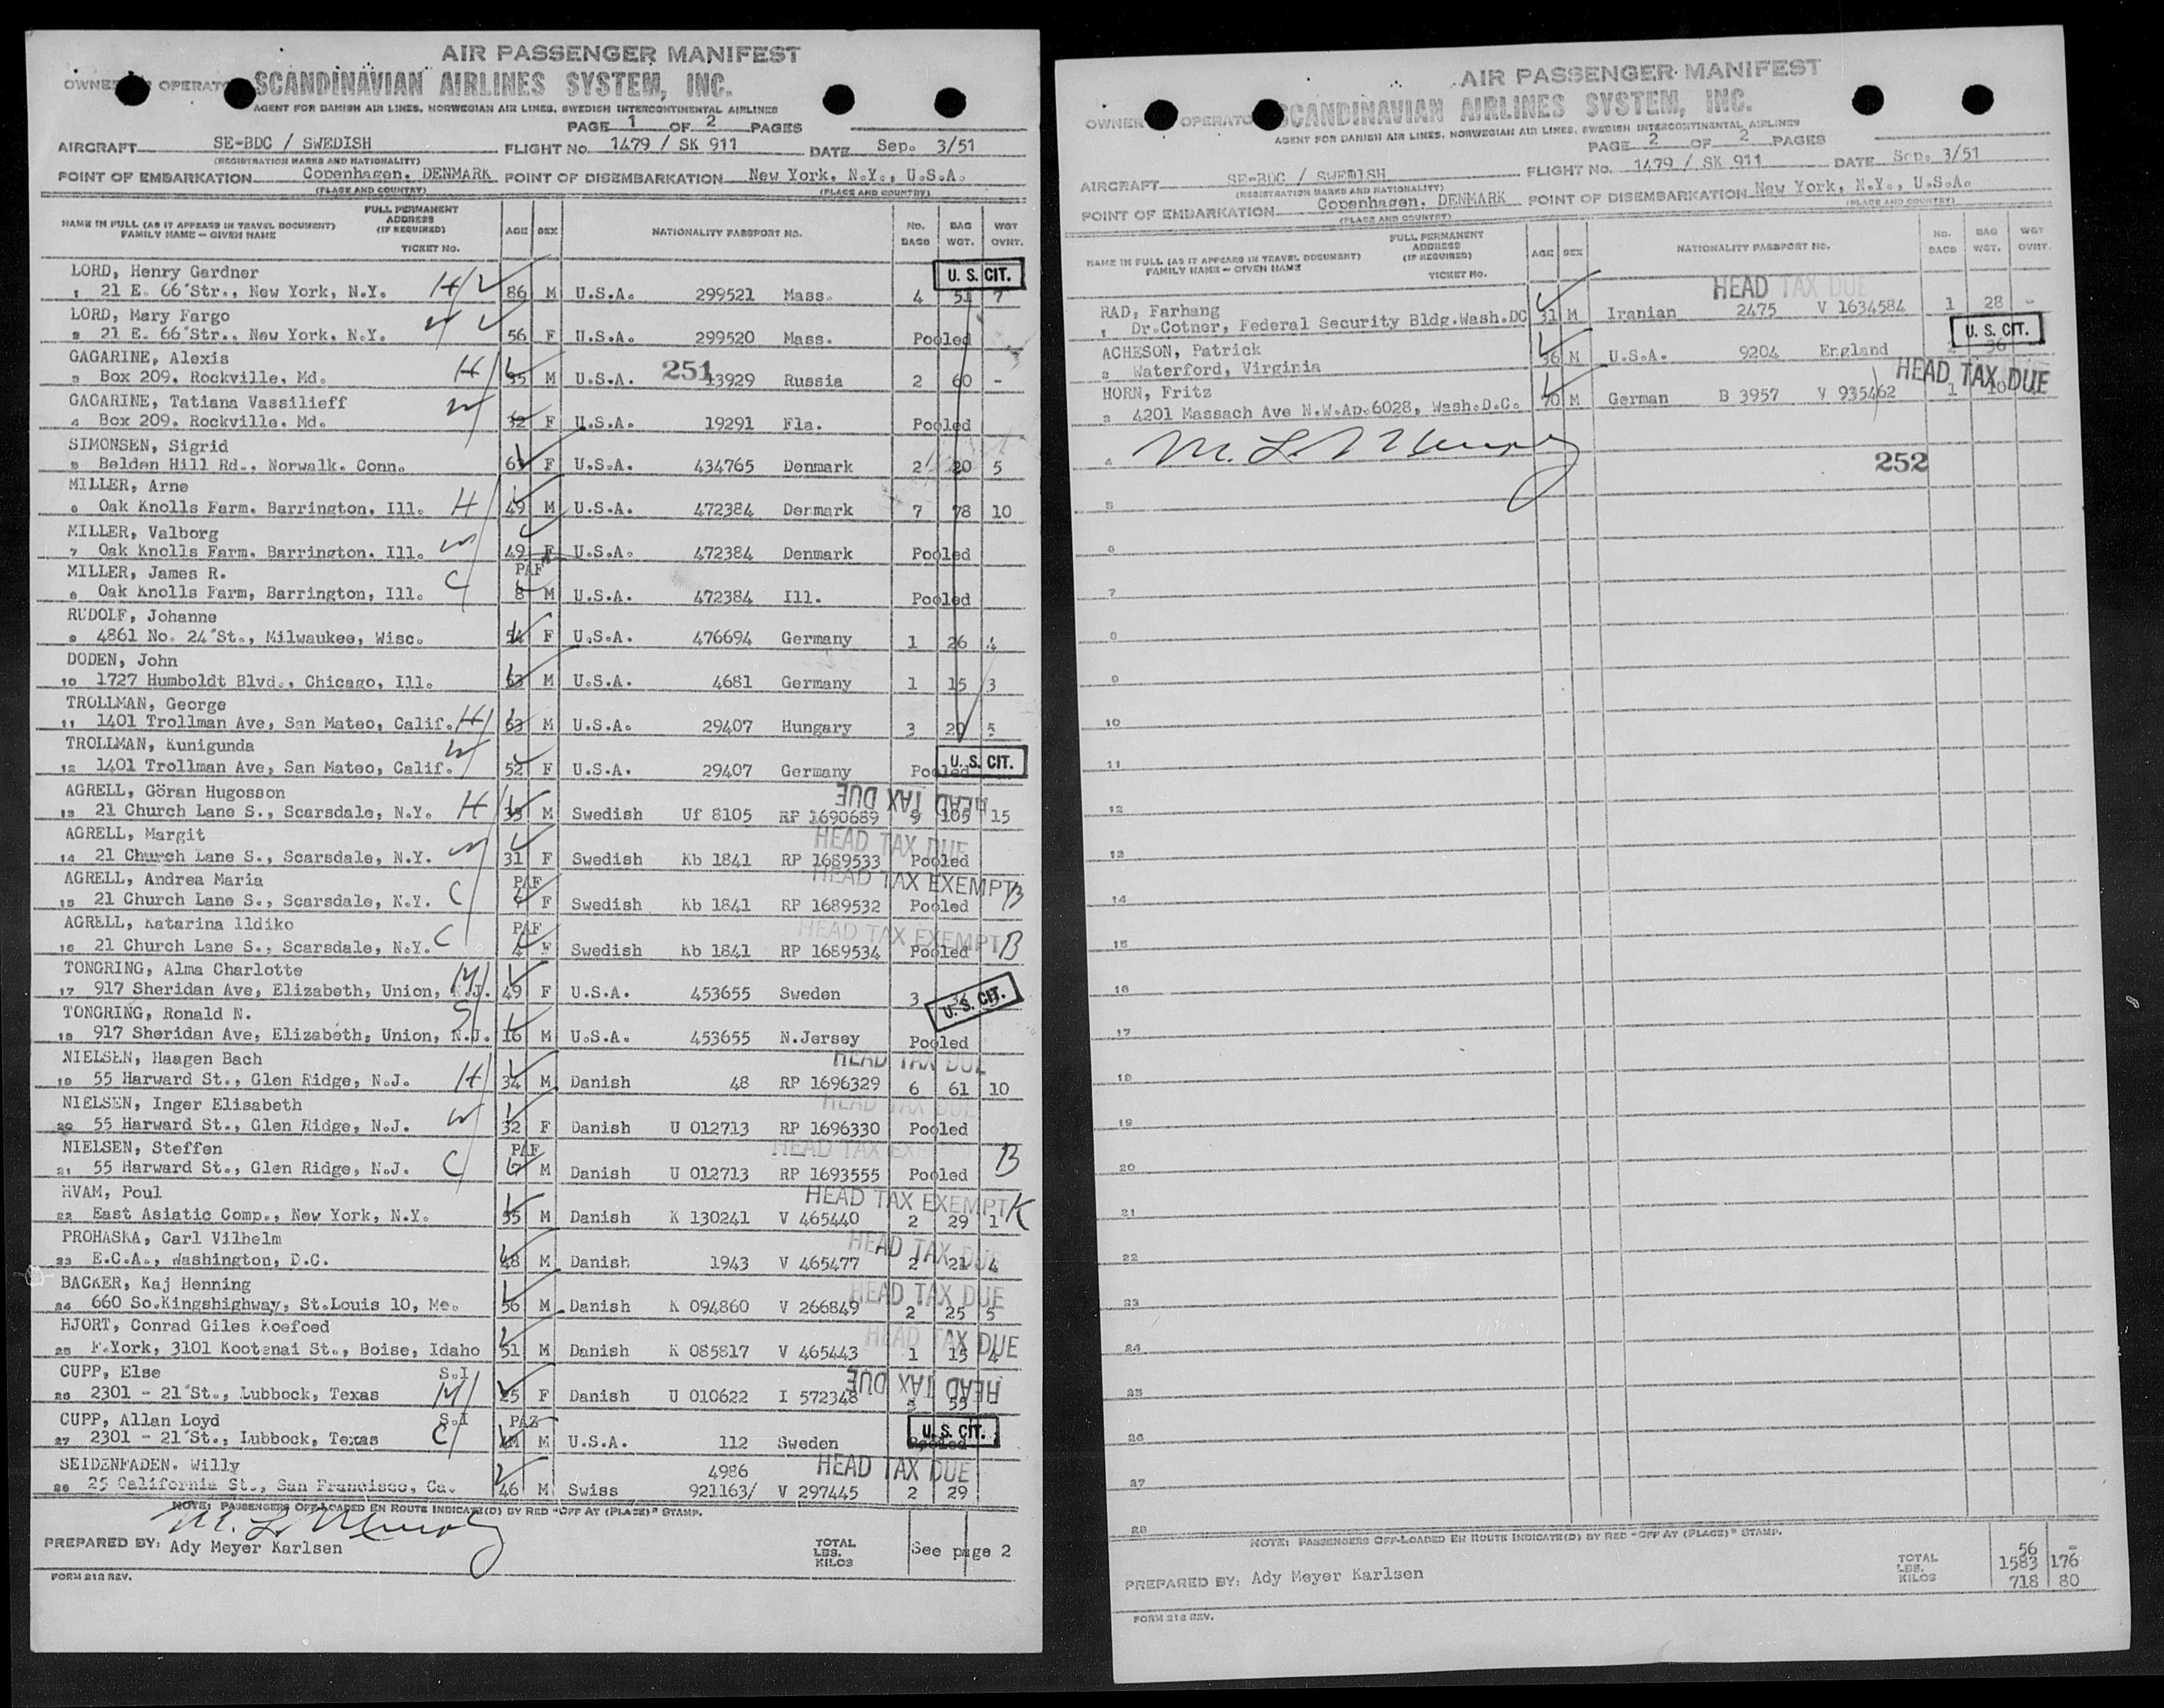 AIR PASSENGER MANIFEST
OWNER OPERATOR SCANDINAVIAN AIRLINES SYSTEM, INC.
AGENT FOR DANISH AIR LINES, NORWEGIAN AIR LINES, SWEDISH INTERCONTINENTAL AIRLINES
PAGE 1 OF 2 PAGES
AIRCRAFT SE-BDC / SWEDISH FLIGHT NO. 1479 / SK 911 DATE Sep. 3/51
(REGISTRATION MARKS AND NATIONALITY)
POINT OF EMBARKATION Copenhagen, DENMARK POINT OF DISEMBARKATION New York, N.Y., U.S.A.
(PLACE AND COUNTRY) (PLACE AND COUNTRY)
NAME IN FULL (AS IT APPEARS IN TRAVEL DOCUMENT) FAMILY NAME - GIVEN NAME FULL PERMANENT ADDRESS (IF REQUIRED) TICKET NO. AGE SEX NATIONALITY PASSPORT NO. NO. BAGS BAG WGT. WGT OVNT.
LORD, Henry Gardner U. S. CIT.
1 21 E. 66 Str., New York, N.Y. H 86 M U.S.A. 299521 Mass. 4 51 7
LORD, Mary Fargo
2 21 E. 66 Str., New York, N.Y. W 56 F U.S.A. 299520 Mass. Pooled
GAGARINE, Alexis 251
3 Box 209, Rockville, Md. H 55 M U.S.A. 13929 Russia 2 60 -
GAGARINE, Tatiana Vassilieff
4 Box 209, Rockville, Md. W 32 F U.S.A. 19291 Fla. Pooled
SIMONSEN, Sigrid
5 Belden Hill Rd., Norwalk, Conn. 61 F U.S.A. 434765 Denmark 2 20 5
MILLER, Arne
6 Oak Knolls Farm, Barrington, Ill. H 49 M U.S.A. 472384 Denmark 7 78 10
MILLER, Valborg
7 Oak Knolls Farm, Barrington, Ill. W 49 F U.S.A. 472384 Denmark Pooled
MILLER, James R. PAF
8 Oak Knolls Farm, Barrington, Ill. C 8 M U.S.A. 472384 Ill. Pooled
RUDOLF, Johanne
9 4861 No. 24 St., Milwaukee, Wisc. 54 F U.S.A. 476694 Germany 1 26 4
DODEN, John
10 1727 Humboldt Blvd., Chicago, Ill. 63 M U.S.A. 4681 Germany 1 15 3
TROLLMAN, George
11 1401 Trollman Ave, San Mateo, Calif. H 53 M U.S.A. 29407 Hungary 3 20 5
TROLLMAN, Kunigunda U. S. CIT.
12 1401 Trollman Ave, San Mateo, Calif. W 52 F U.S.A. 29407 Germany Pooled
AGRELL, Göran Hugosson HEAD TAX DUE
13 21 Church Lane S., Scarsdale, N.Y. H 35 M Swedish Uf 8105 RP 1690689 9 105 15
AGRELL, Margit HEAD TAX DUE
14 21 Church Lane S., Scarsdale, N.Y. W 31 F Swedish Kb 1841 RP 1689533 Pooled
AGRELL, Andrea Maria PAF HEAD TAX EXEMPT B
15 21 Church Lane S., Scarsdale, N.Y. C F Swedish Kb 1841 RP 1689532 Pooled
AGRELL, Katarina Ildiko PAF HEAD TAX EXEMPT B
16 21 Church Lane S., Scarsdale, N.Y. C 4 F Swedish Kb 1841 RP 1689534 Pooled
TONGRING, Alma Charlotte
17 917 Sheridan Ave, Elizabeth, Union, N.J. M 49 F U.S.A. 453655 Sweden 3 U. S. CIT.
TONGRING, Ronald N.
18 917 Sheridan Ave, Elizabeth, Union, N.J. S 16 M U.S.A. 453655 N.Jersey Pooled
NIELSEN, Haagen Bach HEAD TAX DUE
19 55 Harward St., Glen Ridge, N.J. H 34 M Danish 48 RP 1696329 6 61 10
NIELSEN, Inger Elisabeth HEAD TAX DUE
20 55 Harward St., Glen Ridge, N.J. W 32 F Danish U 012713 RP 1696330 Pooled
NIELSEN, Steffen PAF HEAD TAX EXEMPT B
21 55 Harward St., Glen Ridge, N.J. C M Danish U 012713 RP 1693555 Pooled
HVAM, Poul HEAD TAX EXEMPT K
22 East Asiatic Comp., New York, N.Y. 55 M Danish K 130241 V 465440 2 29 1
PROHASKA, Carl Vilhelm HEAD TAX DUE
23 E.C.A., Washington, D.C. 48 M Danish 1943 V 465477 2 21 4
BACKER, Kaj Henning HEAD TAX DUE
24 660 So.Kingshighway, St.Louis 10, Mo. 56 M Danish K 094860 V 266849 2 25 5
HJORT, Conrad Giles Koefoed HEAD TAX DUE
25 F.York, 3101 Kootenai St., Boise, Idaho 51 M Danish K 085817 V 465443 1 15 4
CUPP, Else S.I HEAD TAX DUE
26 2301 - 21 St., Lubbock, Texas M 25 F Danish U 010622 I 572348 3 55
CUPP, Allan Loyd S.I PAZ U. S. CIT.
27 2301 - 21 St., Lubbock, Texas C M U.S.A. 112 Sweden Pooled
SEIDENFADEN, Willy 4986 HEAD TAX DUE
28 25 California St., San Francisco, Ca. 46 M Swiss 921163/ V 297445 2 29
NOTE: PASSENGERS OFF-LOADED EN ROUTE INDICATE(D) BY RED "OFF AT (PLACE)" STAMP.
PREPARED BY: Ady Meyer Karlsen TOTAL LBS. KILOS See page 2
FORM 218 REV.
AIR PASSENGER MANIFEST
OWNER OPERATOR SCANDINAVIAN AIRLINES SYSTEM, INC.
AGENT FOR DANISH AIR LINES, NORWEGIAN AIR LINES, SWEDISH INTERCONTINENTAL AIRLINES
PAGE 2 OF 2 PAGES
AIRCRAFT SE-BDC / SWEDISH FLIGHT NO. 1479 / SK 911 DATE Sep. 3/51
(REGISTRATION MARKS AND NATIONALITY)
POINT OF EMBARKATION Copenhagen, DENMARK POINT OF DISEMBARKATION New York, N.Y., U.S.A.
(PLACE AND COUNTRY) (PLACE AND COUNTRY)
NAME IN FULL (AS IT APPEARS IN TRAVEL DOCUMENT) FAMILY NAME - GIVEN NAME FULL PERMANENT ADDRESS (IF REQUIRED) TICKET NO. AGE SEX NATIONALITY PASSPORT NO. NO. BAGS BAG WGT. WGT OVNT.
RAD, Farhang HEAD TAX DUE
1 Dr.Cotner, Federal Security Bldg.Wash.DC 31 M Iranian 2475 V 1634584 1 28 -
ACHESON, Patrick U. S. CIT.
2 Waterford, Virginia 36 M U.S.A. 9204 England 2 36
HORN, Fritz HEAD TAX DUE
3 4201 Massach Ave N.W.Ap.6028, Wash.D.C. 70 M German B 3957 V 935462 1 10
4 252
5
6
7
8
9
10
11
12
13
14
15
16
17
18
19
20
21
22
23
24
25
26
27
28
NOTE: PASSENGERS OFF-LOADED EN ROUTE INDICATE(D) BY RED "OFF AT (PLACE)" STAMP.
56 -
TOTAL 1583 176
LBS.
PREPARED BY: Ady Meyer Karlsen KILOS 718 80
FORM 218 REV.